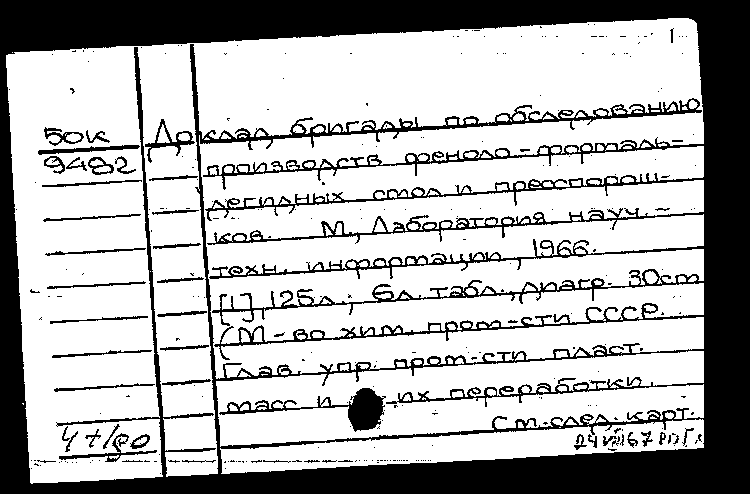 1
50к Доклад бригады по обследованию
9482 производств феноло-формаль-
дегидных смол и пресспорош-
ков. М., Лаборатория науч.-
техн. информации, 1966.
[1], 125л.; 6л. табл., диагр. 30cm
(М-во хим. пром-сти СССР.
Глав. упр. пром-сти пласт.
масс и их переработки.
См. след. карт.